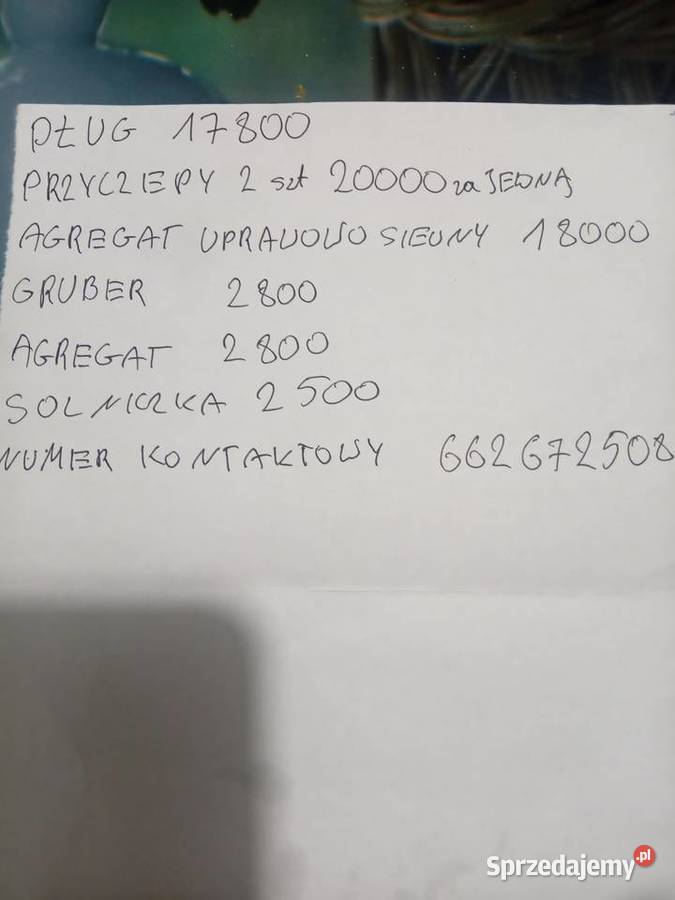 PŁUG 17800
PRZYCZEPY 2 szt 20000 za JEDNĄ
AGREGAT UPRAWOWO SIEWNY 18000
GRUBER 2800
AGREGAT 2800
SOLNICZKA 2500
NUMER KONTAKTOWY 662672508
Sprzedajemy.pl